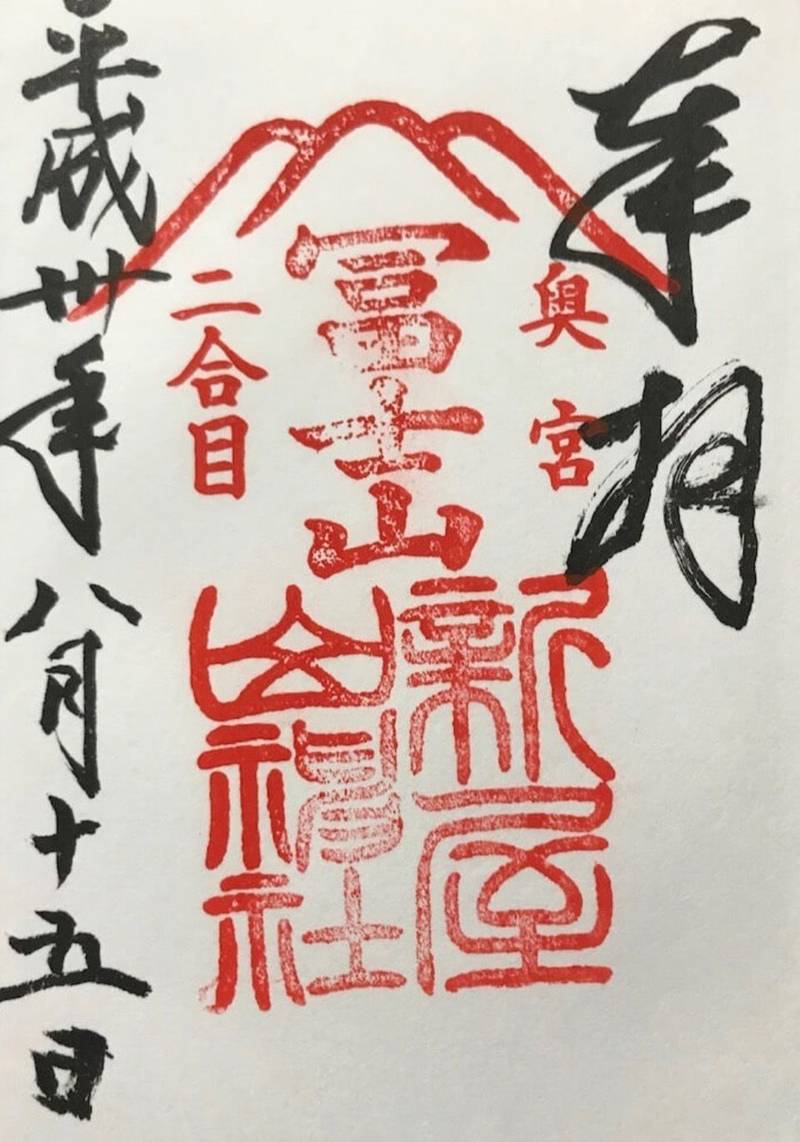 奉拝
奥宮
冨士山
二合目
新屋
山神社
平成卅年八月十五日